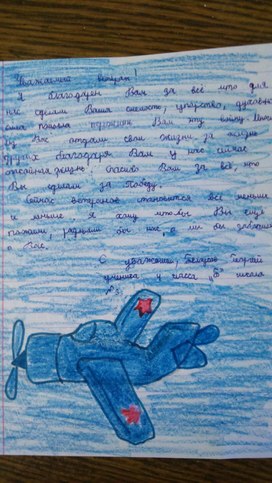 Уважаемый ветеран!
Я благодарен Вам за всё что для
нас сделали Ваша смелость, упорство, духовная
сила помогла Вам эту войну. Многие
из Вас отдали свои жизни за жизнь
других. Благодаря Вам у нас сейчас
спокойная жизнь. Спасибо Вам за всё, что
Вы сделали за Победу.
Сейчас ветеранов становится всё меньше
и меньше, я хочу чтобы Вы ещё
радовали нас, а мы бы заботились
о Вас.
С уважением, Георгий
ученик 4 класса "Б" школа